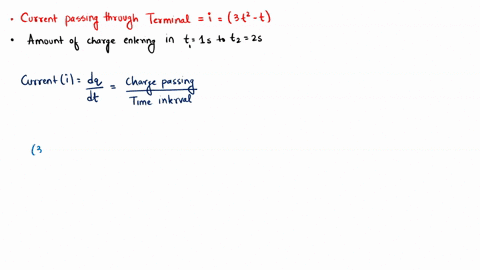 • Current passing through Terminal = i = (3t² - t)
• Amount of charge entering in t₁ = 1s to t₂ = 2s
Current (i) = dq/dt = Charge passing / Time interval
(3